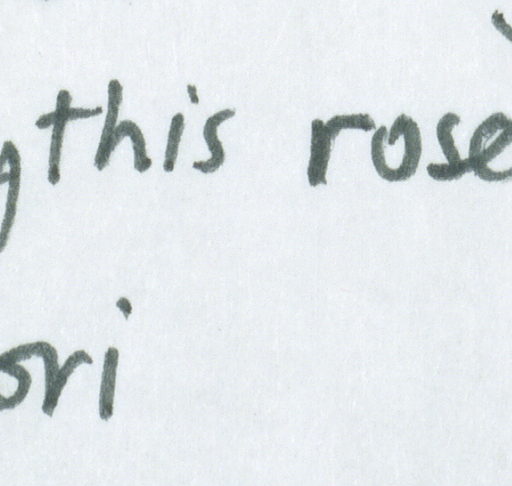 this rose
ori